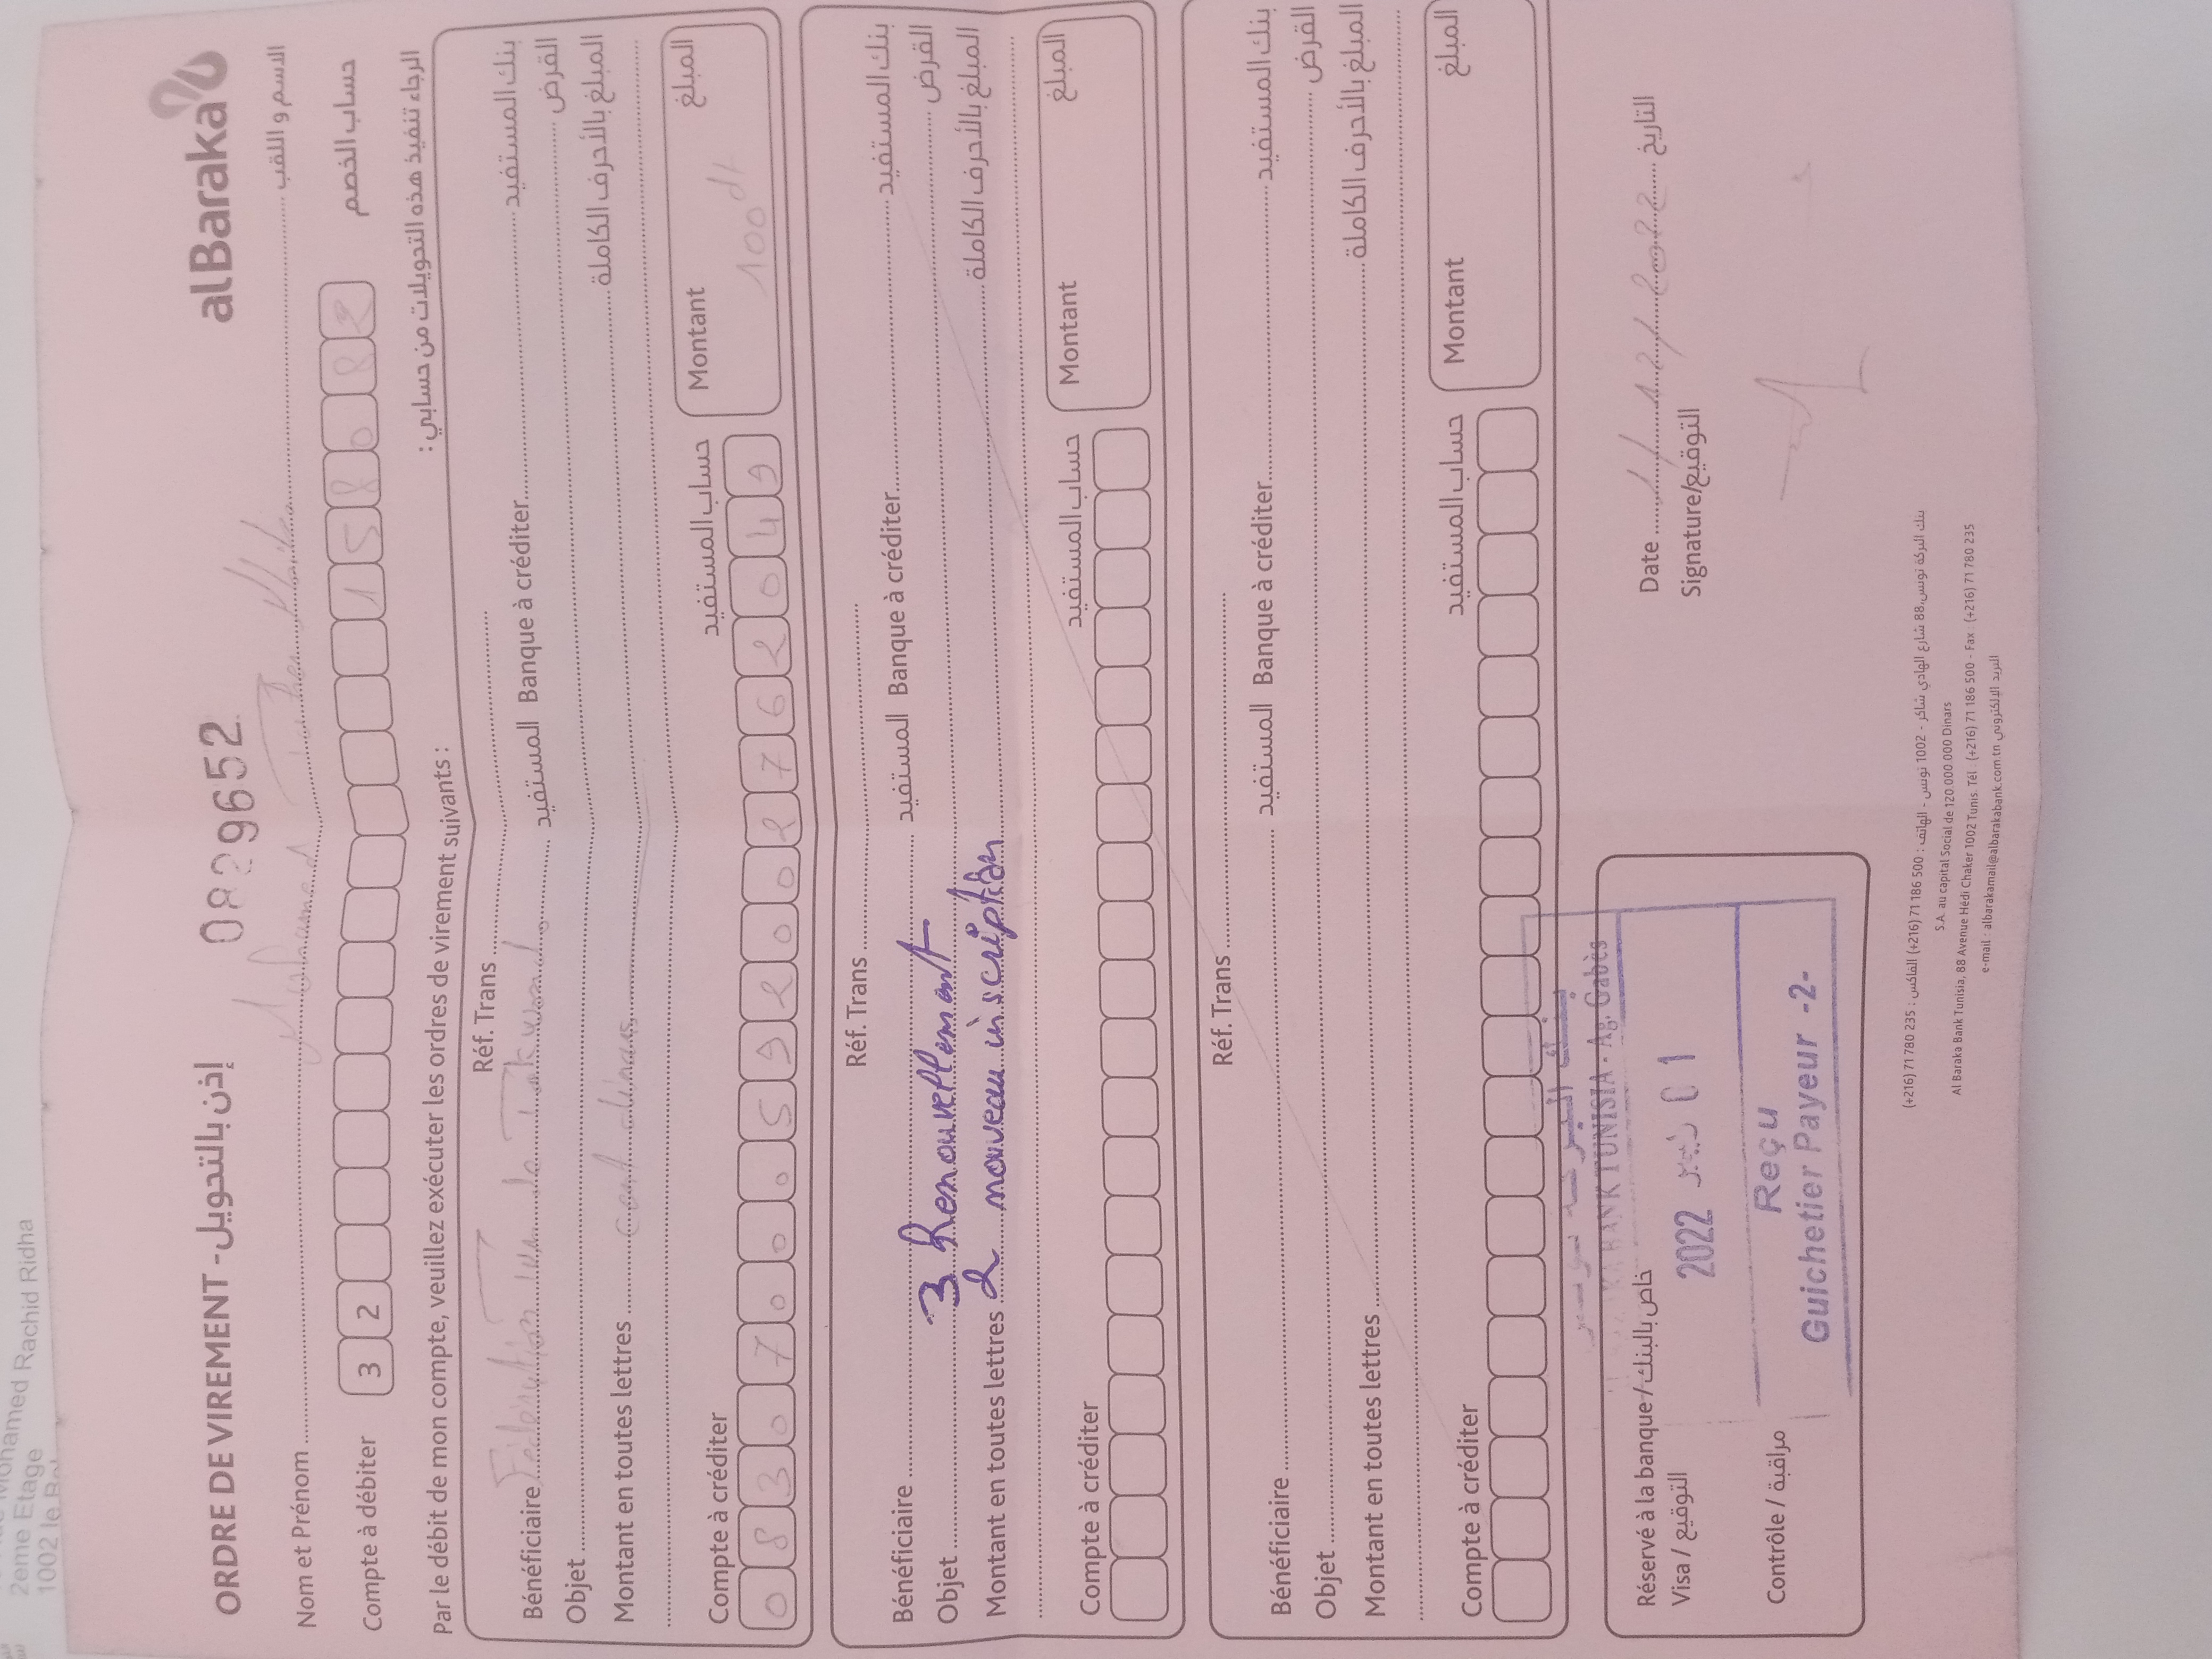 Mohamed Rachid Ridha
2eme Etage
1002 le B
ORDRE DE VIREMENT - إذن بالتحويل
0829652
alBaraka
Nom et Prénom Mohamed الاسم و اللقب
Compte à débiter 3 2 1 5 8 0 8 2 حساب الخصم
Par le débit de mon compte, veuillez exécuter les ordres de virement suivants :
الرجاء تنفيذ هذه التحويلات من حسابي :
Réf. Trans
Bénéficiaire المستفيد Banque à créditer بنك المستفيد
Objet الغرض
Montant en toutes lettres cent dinars المبلغ بالأحرف الكاملة
Compte à créditer حساب المستفيد
0 8 3 0 7 0 0 0 5 9 2 0 0 2 7 6 2 0 4 9
Montant المبلغ
100 dt
Réf. Trans
Bénéficiaire المستفيد Banque à créditer بنك المستفيد
Objet 3 Renouvellemant الغرض
Montant en toutes lettres 2 nouveau inscription المبلغ بالأحرف الكاملة
Compte à créditer حساب المستفيد
Montant المبلغ
Réf. Trans
Bénéficiaire المستفيد Banque à créditer بنك المستفيد
Objet الغرض
Montant en toutes lettres المبلغ بالأحرف الكاملة
Compte à créditer حساب المستفيد
Montant المبلغ
BANK TUNISIA - Ag. Gabès
Réservé à la banque / خاص بالبنك
Visa / التوقيع
2022 ديسمبر 01
Reçu
Guichetier Payeur -2-
Contrôle / مراقبة
Date 1/12/2022 التاريخ
Signature/التوقيع
بنك البركة تونس، 88 شارع الهادي شاكر - 1002 تونس - الهاتف : 500 186 71 (216+) الفاكس : 235 780 71 (216+)
S.A. au capital Social de 120.000.000 Dinars
Al Baraka Bank Tunisia, 88 Avenue Hédi Chaker 1002 Tunis. Tél : (+216) 71 186 500 - Fax : (+216) 71 780 235
e-mail : albarakamail@albarakabank.com.tn البريد الإلكتروني